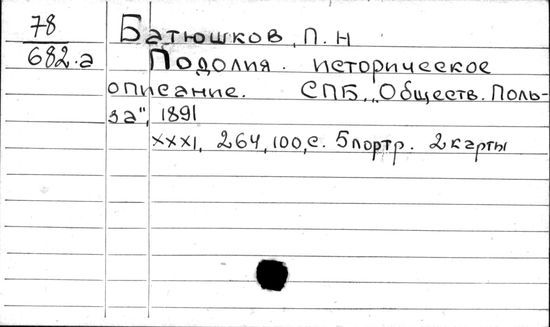 78
682.а
Батюшков, П. Н
Подолия. историческое
описание. СПБ, „Обществ. Поль-
за", 1891
XXXI, 264, 100, с. 5 портр. 2 карты